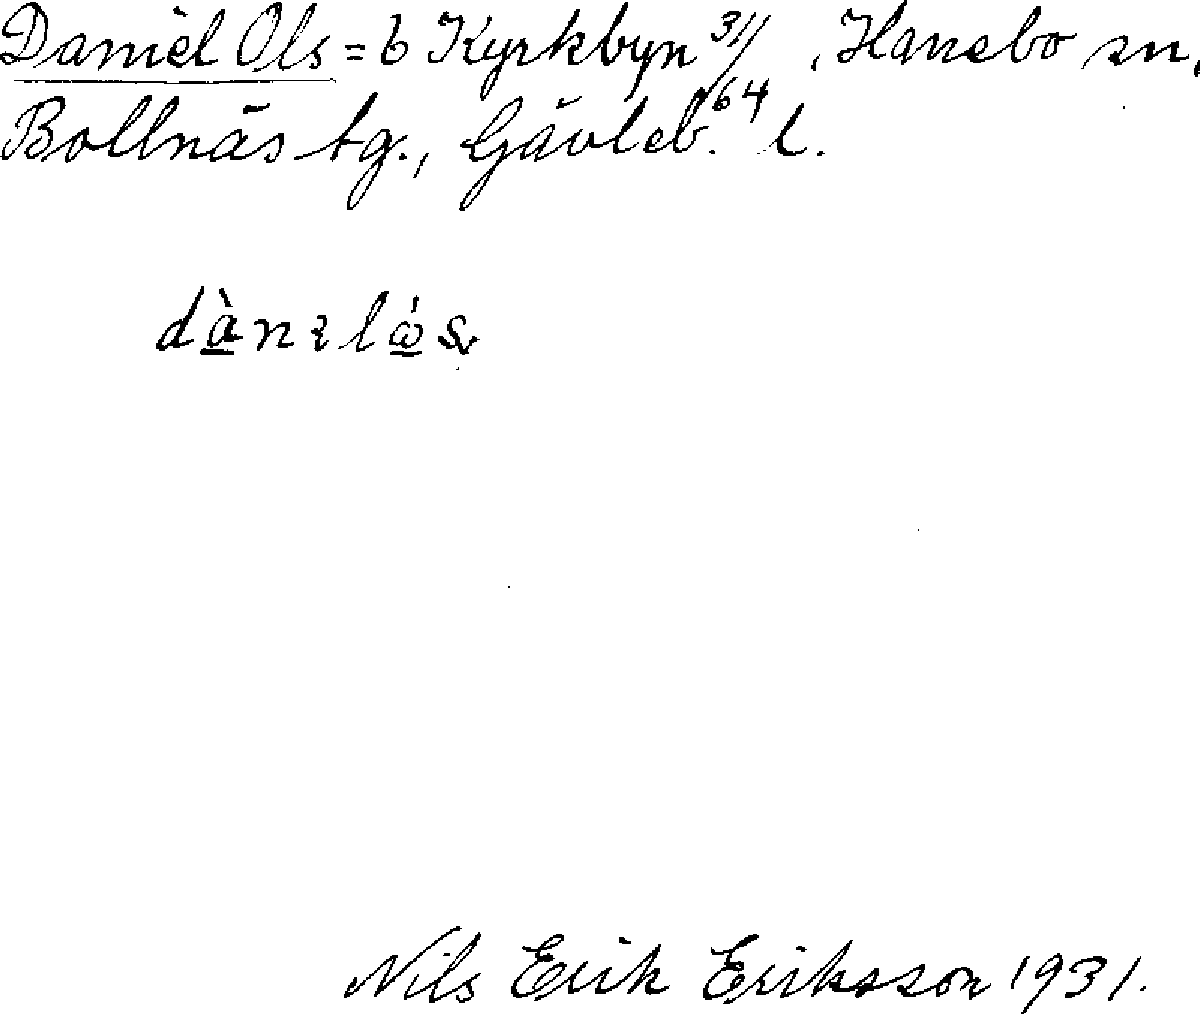 Daniel Ols = 6 Kyrkbyn 31/64, Hanebo sn,
Bollnäs tg., Gävleb. l.
Nils Erik Eriksson 1931.